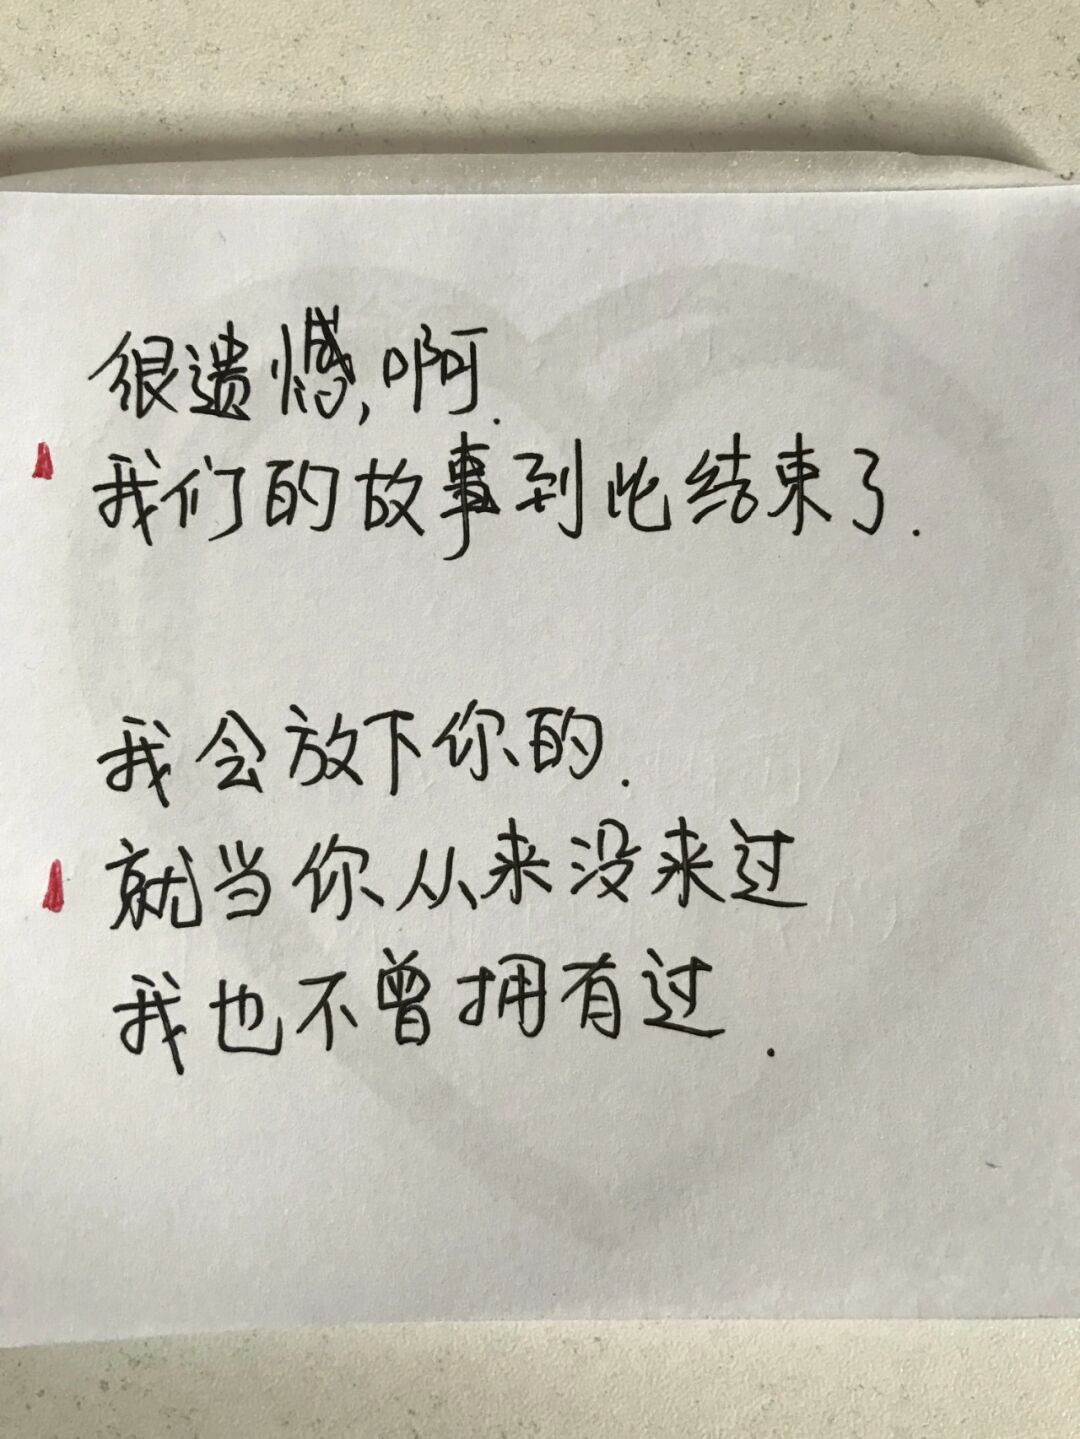 很遗憾,啊.
我们的故事到此结束了.
我会放下你的.
就当你从来没来过
我也不曾拥有过.